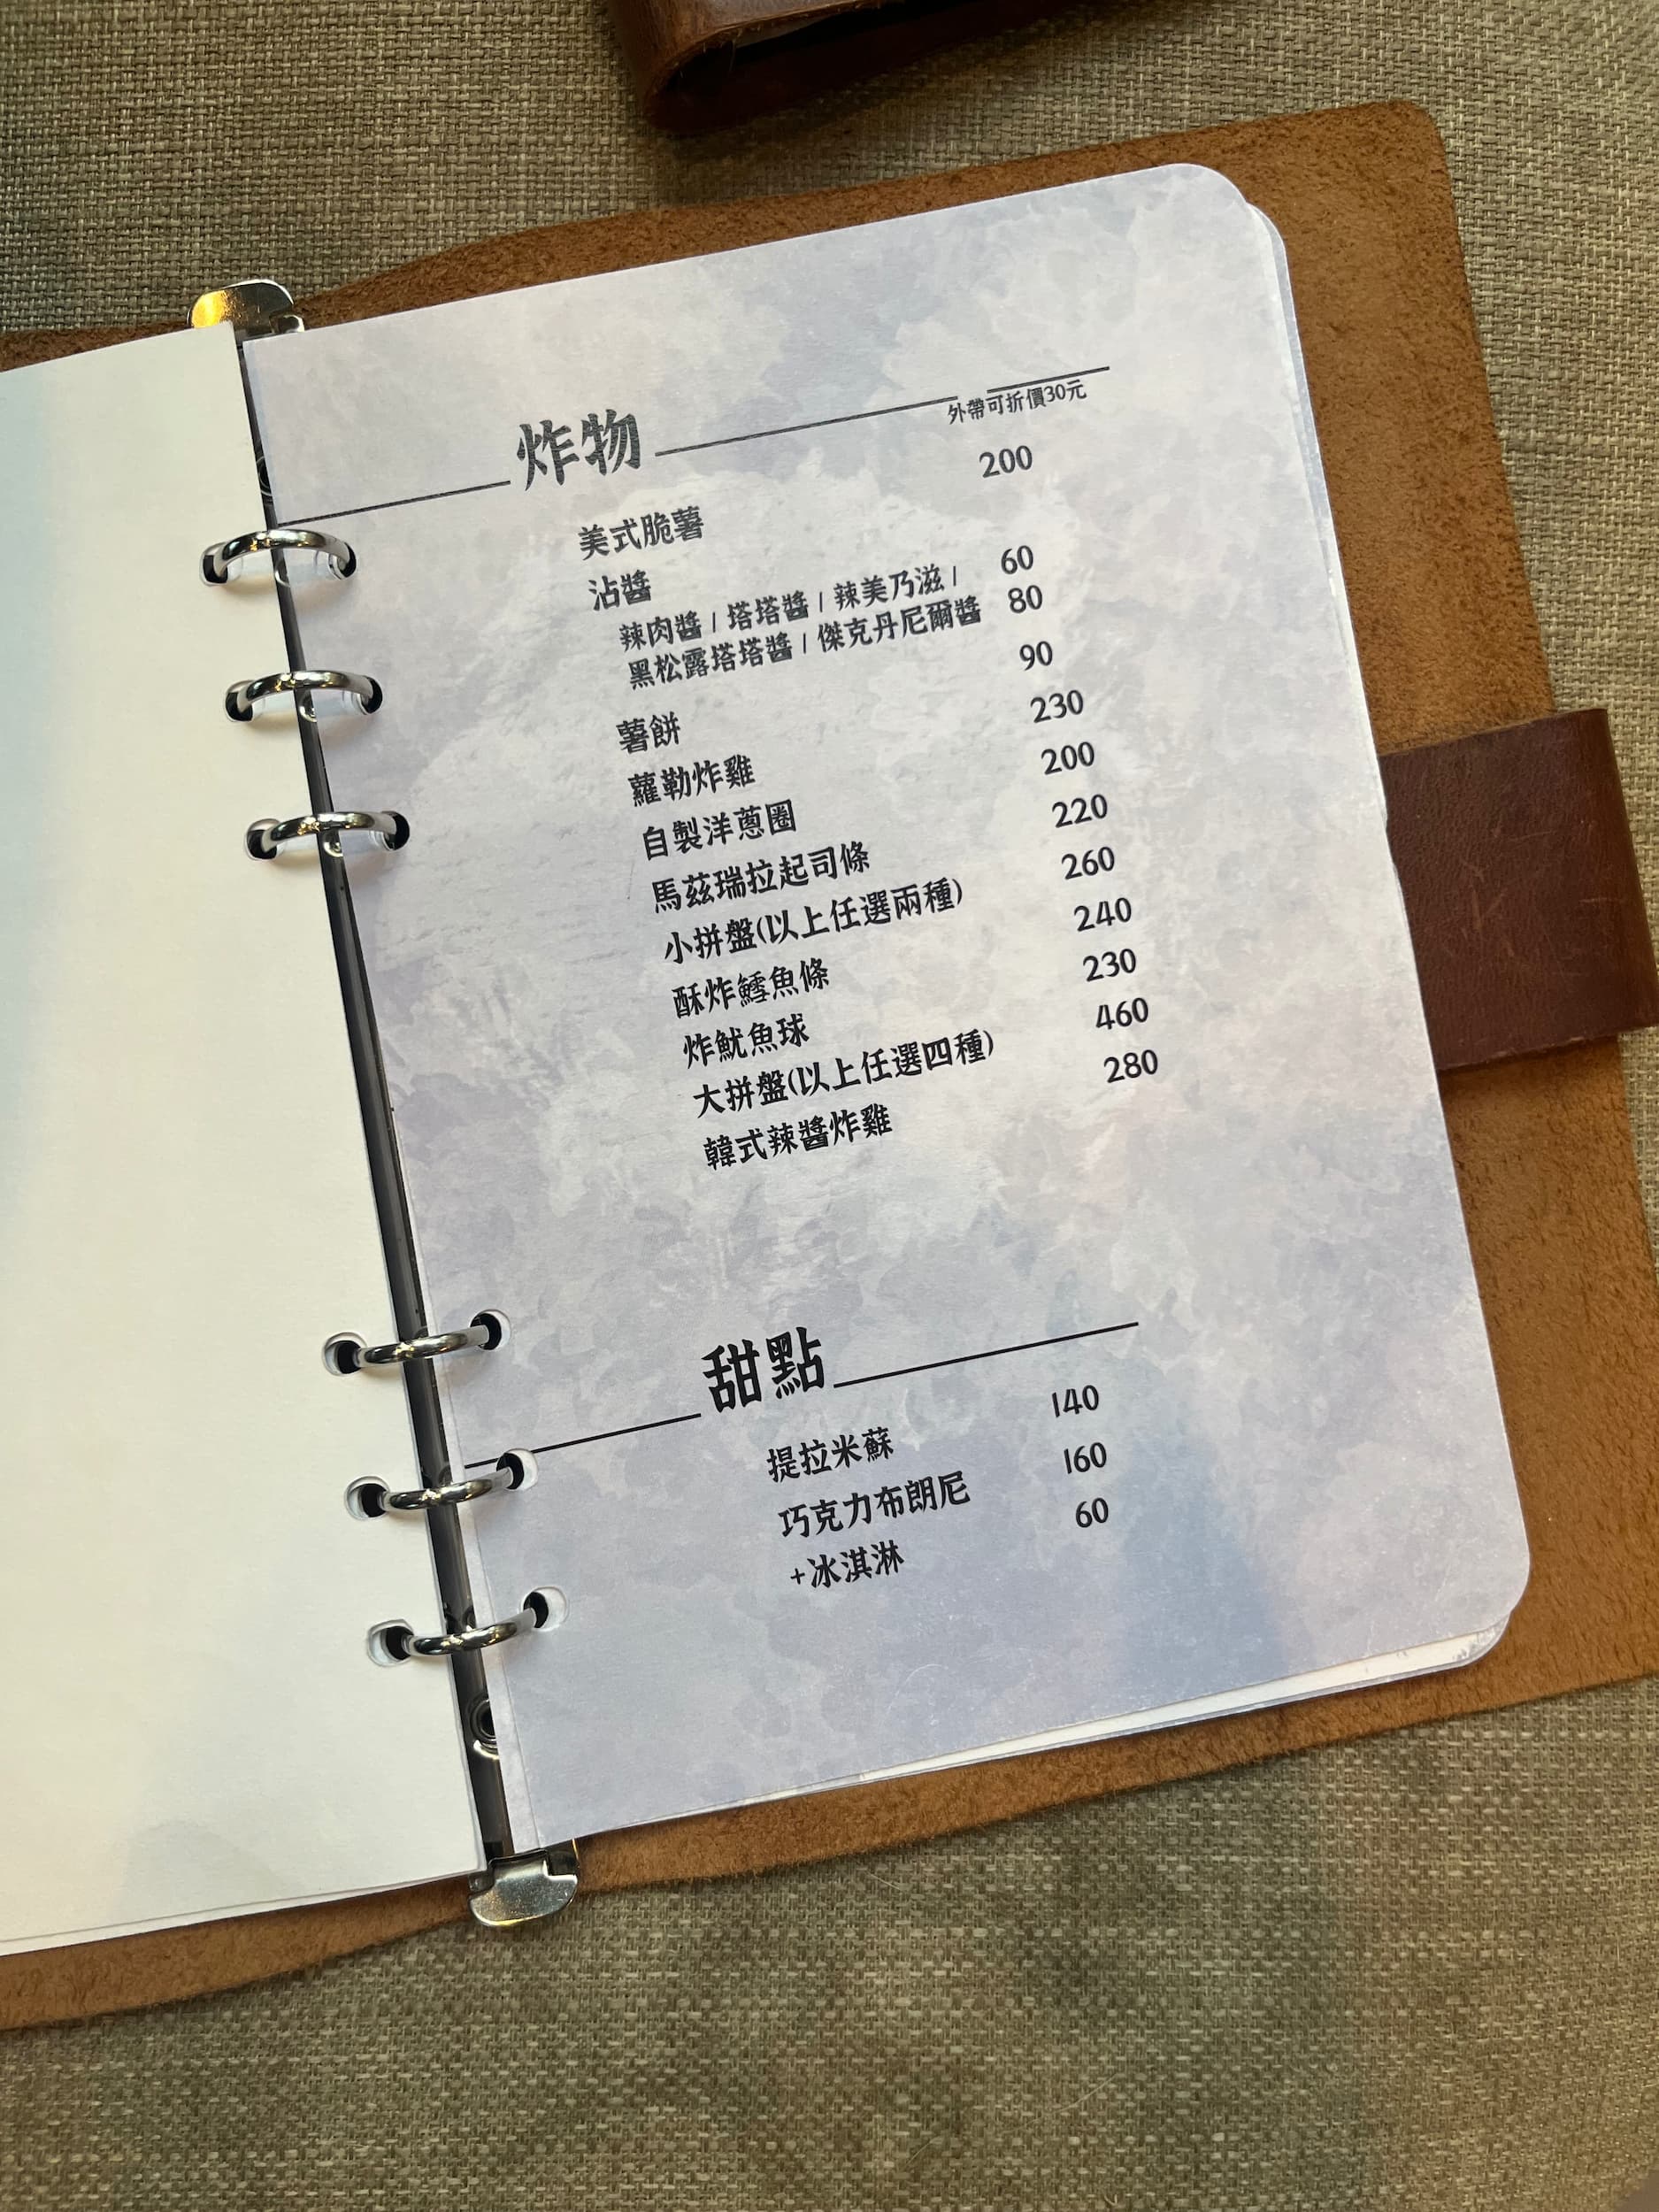 炸物
外帶可折價30元
美式脆薯 200
沾醬
辣肉醬 / 塔塔醬 / 辣美乃滋 / 60
黑松露塔塔醬 / 傑克丹尼爾醬 80
薯餅 90
蘿勒炸雞 230
自製洋蔥圈 200
馬茲瑞拉起司條 220
小拼盤(以上任選兩種) 260
酥炸鱈魚條 240
炸魷魚球 230
大拼盤(以上任選四種) 460
韓式辣醬炸雞 280
甜點
提拉米蘇 140
巧克力布朗尼 160
+冰淇淋 60